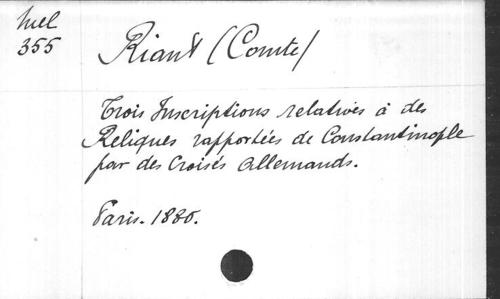 Mel
355
Riant (Comte)
Trois Inscriptions relatives à des
Reliques rapportées de Constantinople
par des Croisés Allemands.
Paris. 1880.